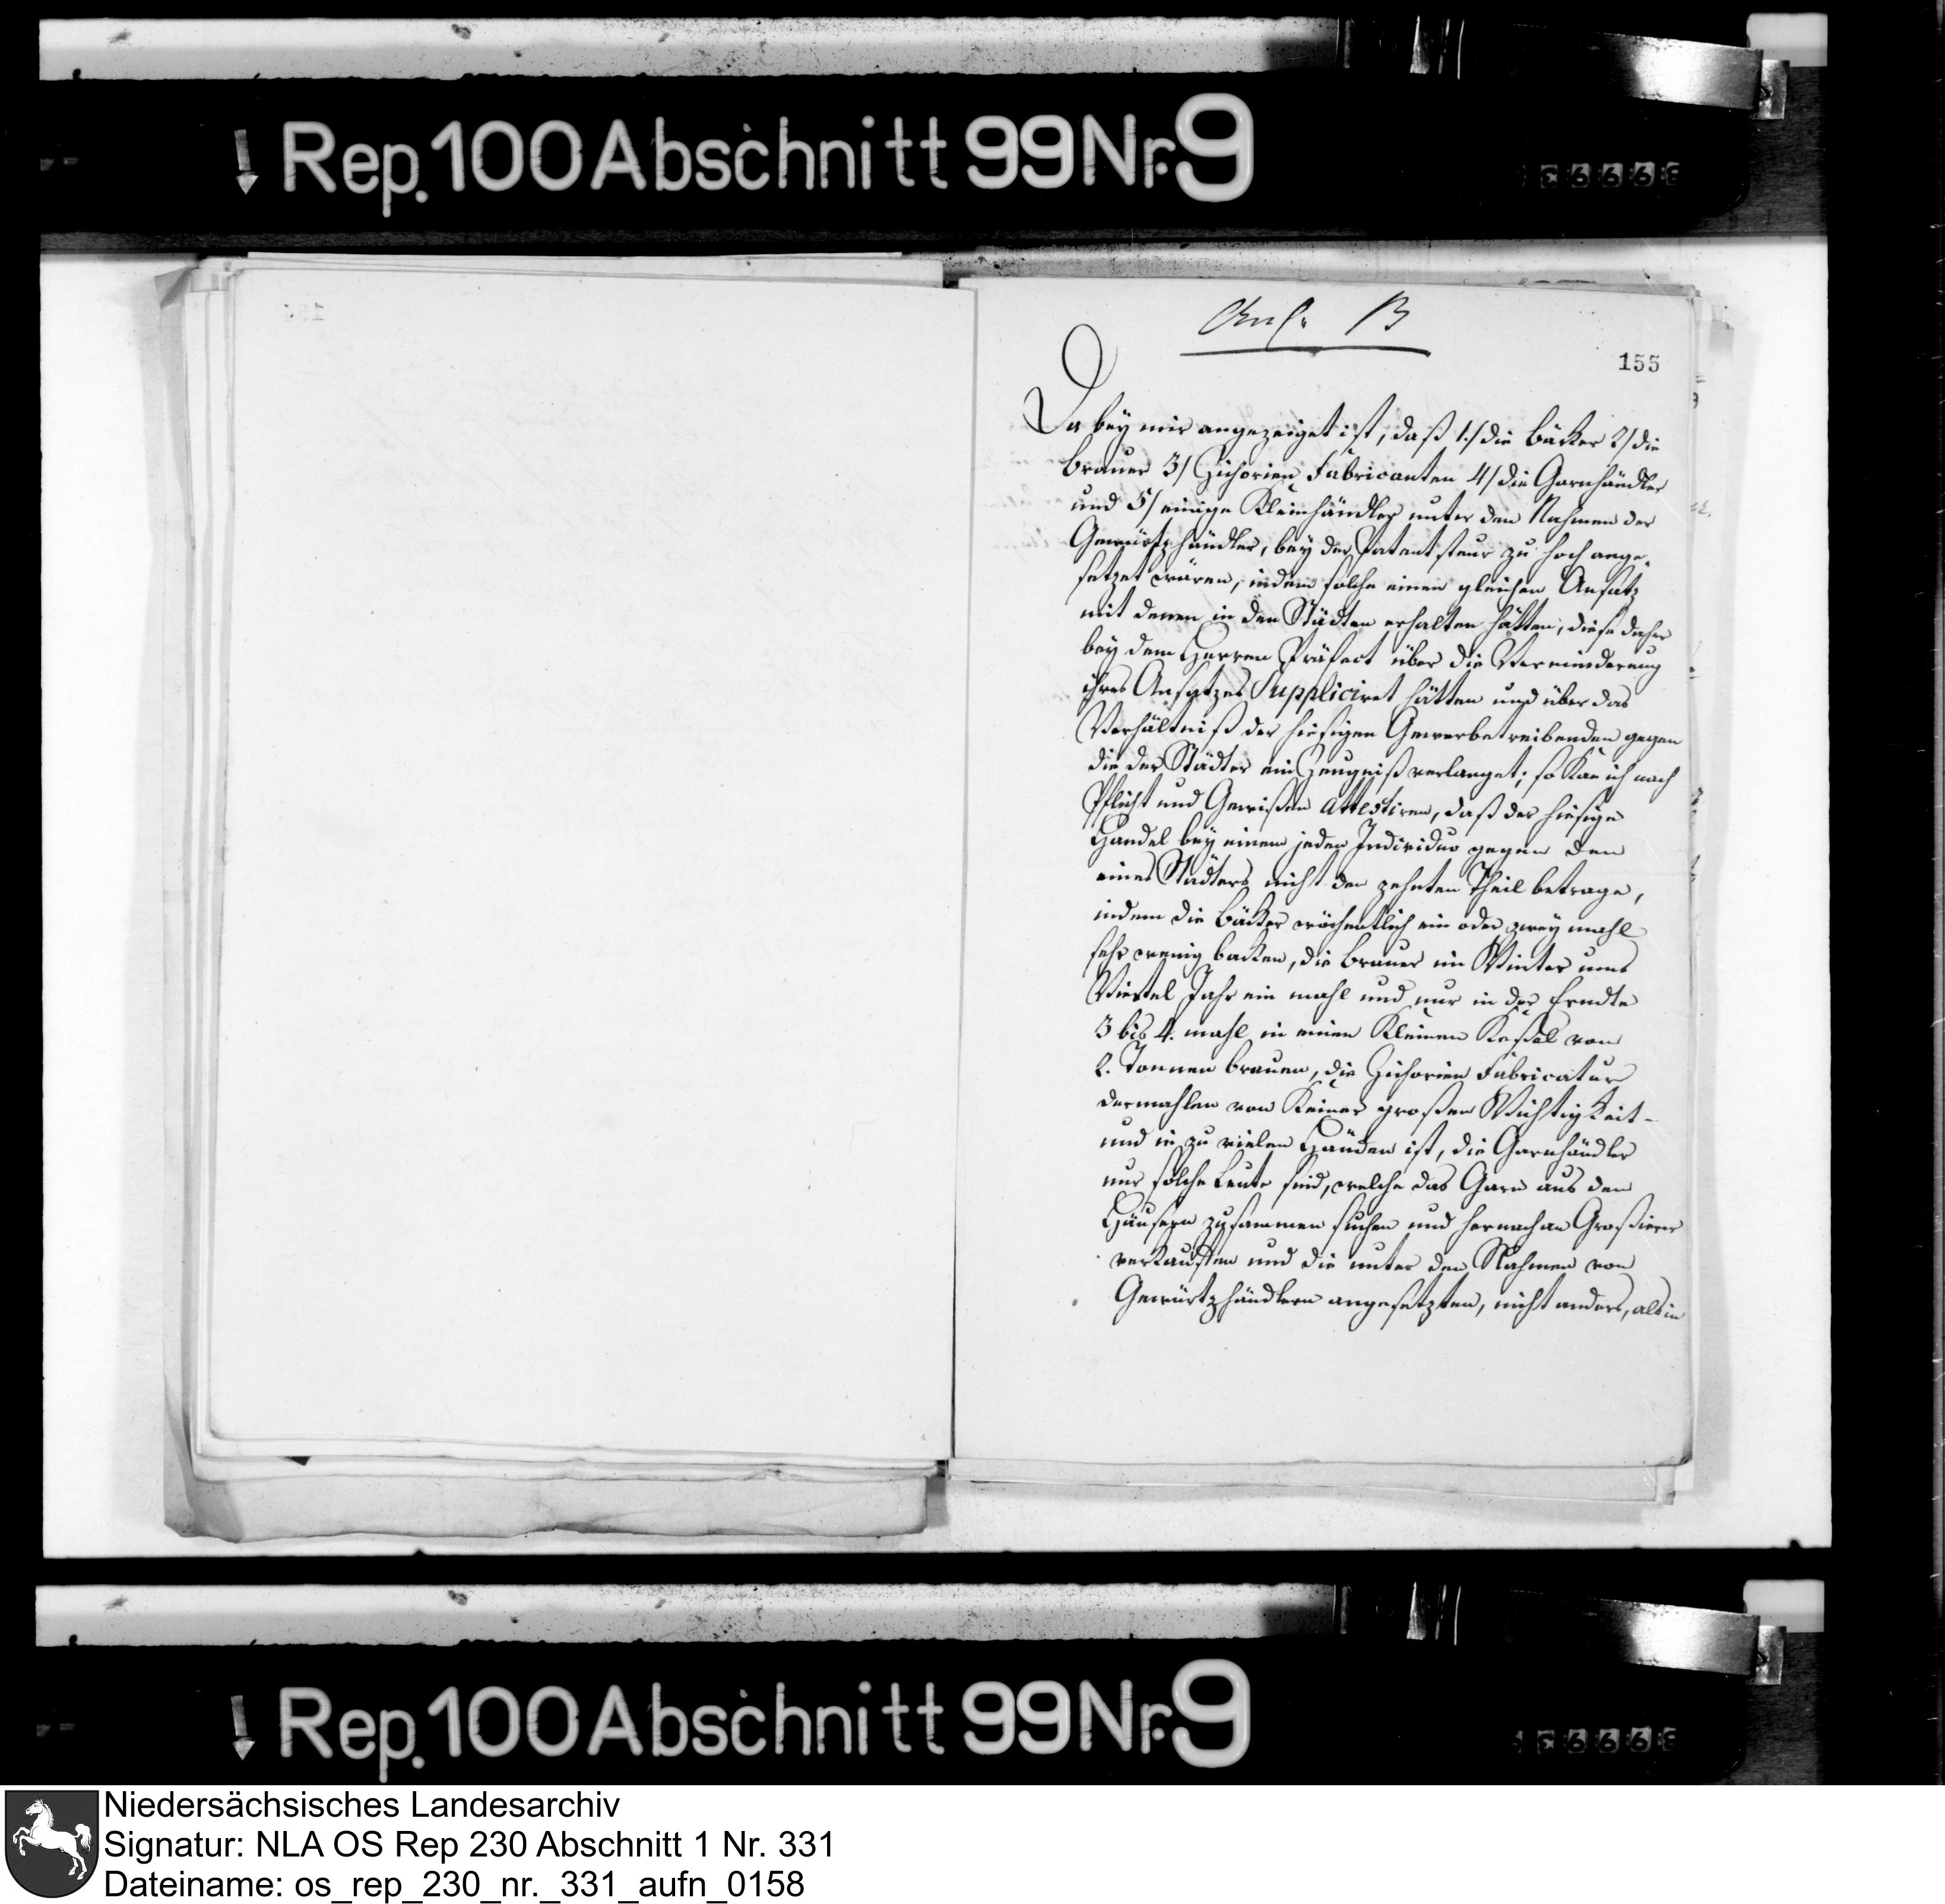 Rep. 100 Abschnitt 99 Nr. 9
Anl. B
155
Da bey mir angezeiget ist, daß 1./ die Bäker 2/ die
Brauer 3/ Zichorien Fabricanten 4/ die Garnhändler
und 5/ einige Kleinhändler unter den Nahmen der
Gewürtzhändler, bey der Patentsteur zu hoch ange-
setzet wären, indem solche einen gleichen Ansatz
mit denen in den Städten erhalten hätten, diese daher
bey dem Herren Präfect über die Verminderung
ihres Ansatzes Suppliciret hätten und über das
Verhältniß der hiesigen Gewerbetreibenden gegen
die der Städter ein Zeugniß verlanget; so kan ich nach
Pflicht und Gewißen attestiren, daß der hiesige
Handel bey einem jeden Individuo gegen den
eines Städters nicht den zehnten Theil betrage,
indem die Bäker wöchentlich ein oder zwey mahl
sehr wenig backen, die Brauer im Winter ums
Viertel Jahr ein mahl und nur in der Erndte
3 bis 4. mahl in einen kleinen Keßel von
2. Tonnen brauen, die Zichorien Fabricatur
dermahlen von keiner großen Wichtigkeit -
und in zu vielen Händen ist, die Garnhändler
nur solche Leute sind, welche das Garn aus den
Häusern zusammen suchen und hernach an Großierer
verkauffen und die unter den Nahmen von
Gewürtzhändlern angesetzten, nicht anders, als in
Rep. 100 Abschnitt 99 Nr. 9
Niedersächsisches Landesarchiv
Signatur: NLA OS Rep 230 Abschnitt 1 Nr. 331
Dateiname: os_rep_230_nr._331_aufn_0158